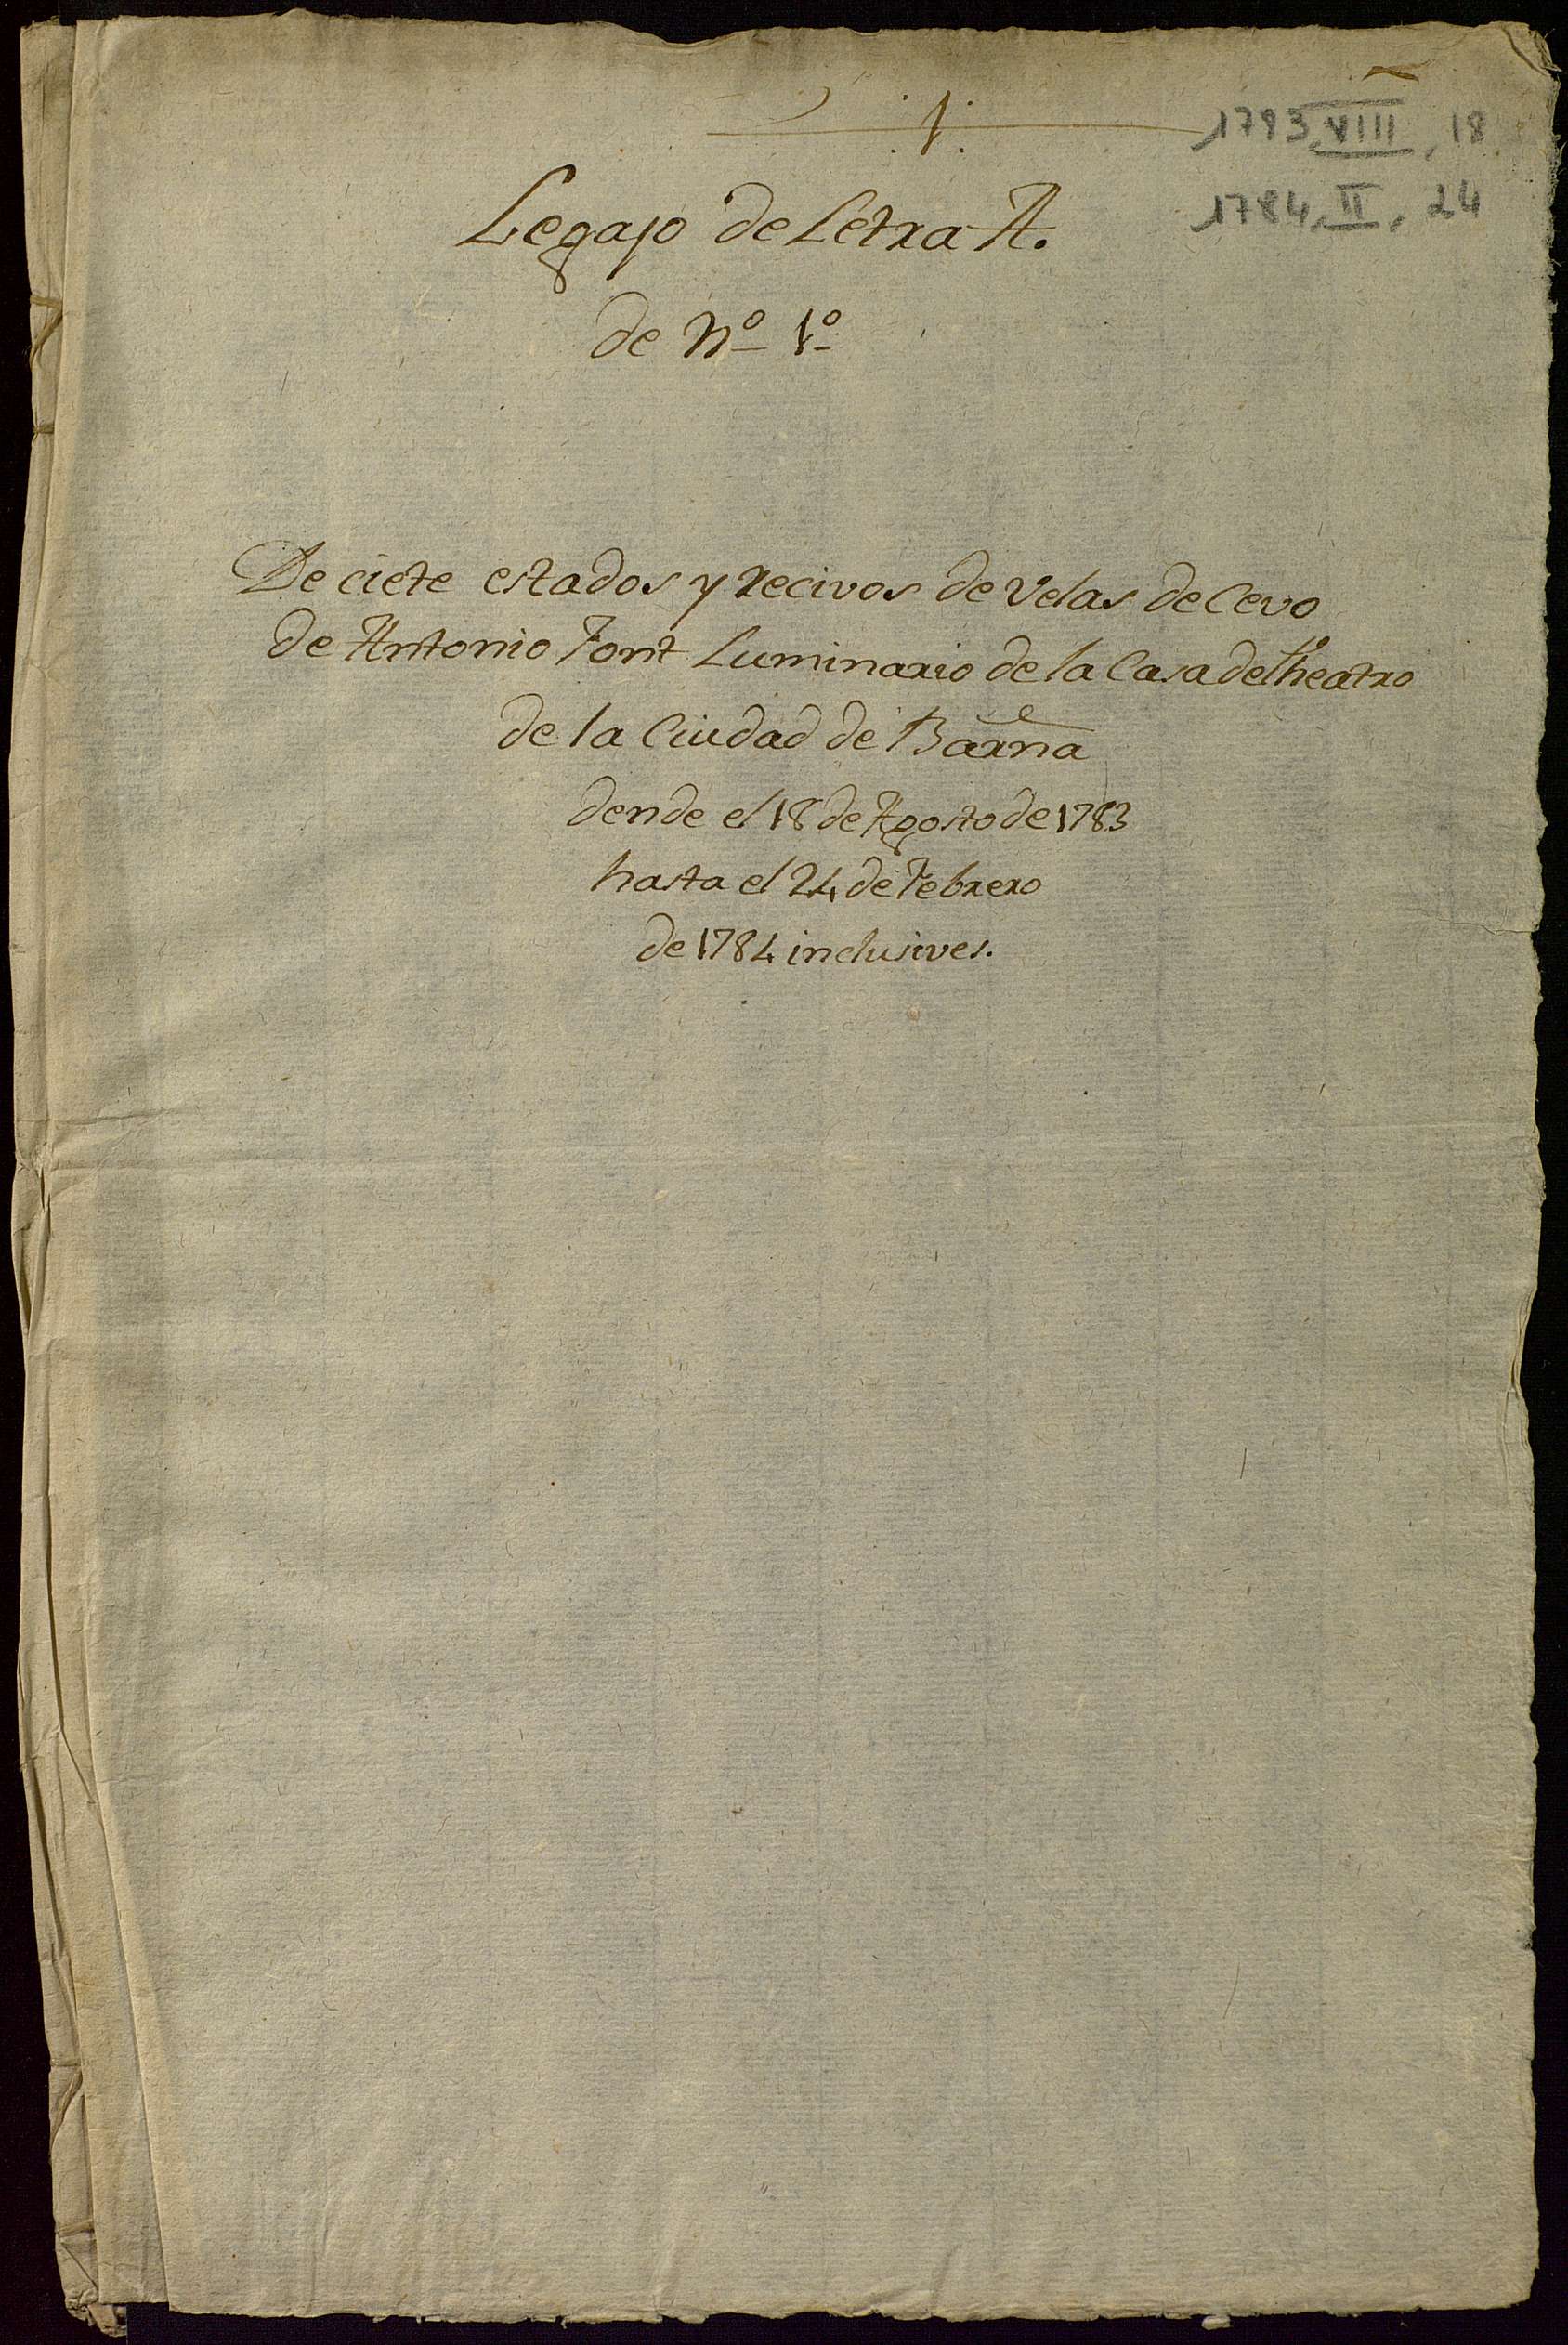 .1.
1793, VIII, 18
1784, II, 24
Legajo de Letra A.
de Nº 1º
De ciete estados y recivos de Velas de Cevo
de Antonio Font Luminario de la Casa del theatro
de la Ciudad de Barna
dende el 18 de Agosto de 1783
hasta el 24 de Febrero
de 1784 inclusives.